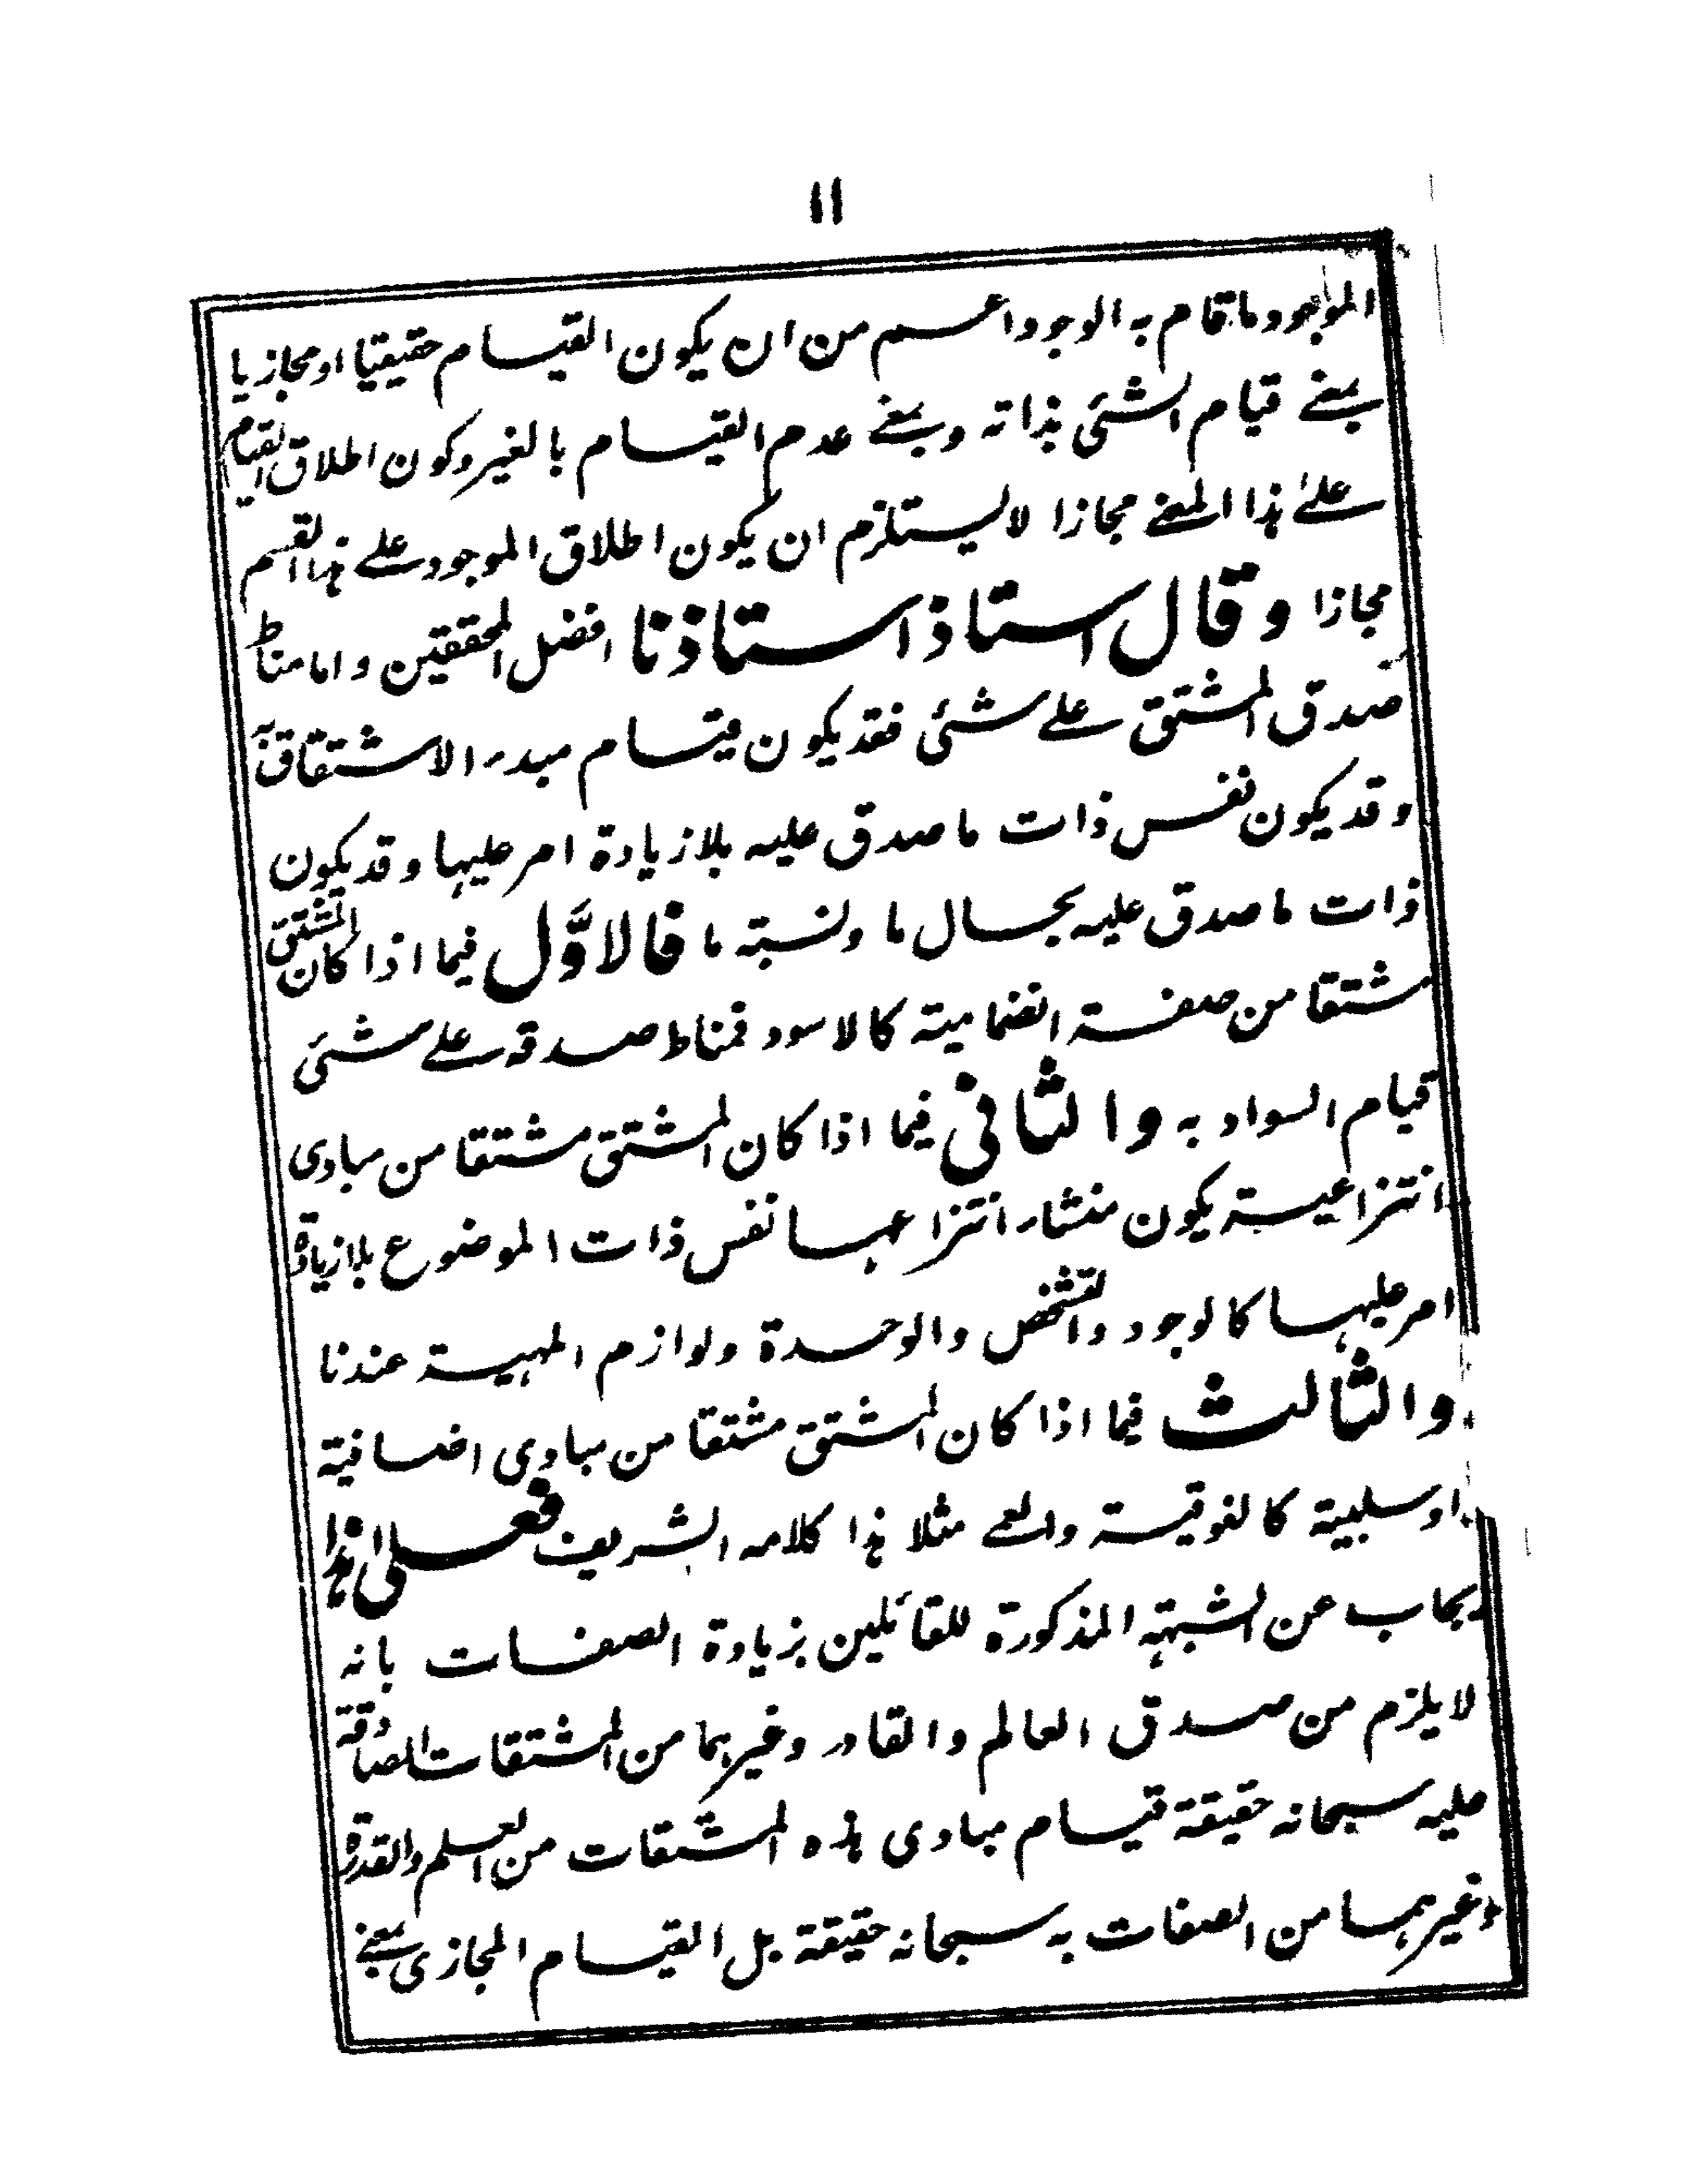 ۱۱
الموجود ما قام به الوجود اعم من ان يكون القيام حقيقيا او مجازيا
بمعنے قيام الشئی بذاته وبمعنے عدم القيام بالغير وكون اطلاق القيام
علےٰ هذا المعنے مجازا لا يستلزم ان يكون اطلاق الموجود علے هذا القسم
مجازا وقال استاذ استاذنا افضل المحققين واما مناط
صدق المشتق علے شئی فقد يكون قيام مبدء الاشتقاق به
وقد يكون نفس ذات ما صدق عليه بلا زيادة امر عليها وقد يكون
ذات ما صدق عليه بحال ما ونسبته ما فالاوّل فيما اذا كان المشتق
مشتقا من صفة انضمامية كالاسود فمناط صدقه علے شئی
قيام السواد به والثانی فيما اذا كان المشتق مشتقا من مبادی
انتزاعية يكون منشاء انتزاعها نفس ذات الموضوع بلا زيادة
امر عليها كالوجود والتشخص والوحدة ولوازم المهية عندنا
والثالث فيما اذا كان المشتق مشتقا من مبادی اضافية
او سلبية كالفوقية والعمے مثلا هذا كلامه الشريف فعلی هذا
يجاب عن الشبهة المذكورة للقائلين بزيادة الصفات بانه
لا يلزم من صدق العالم والقادر وغيرهما من المشتقات الصادقة
عليه سبحانه حقيقة قيام مبادی هذه المشتقات من العلم والقدرة
وغيرهما من الصفات به سبحانه حقيقة بل القيام المجازی بمعنے